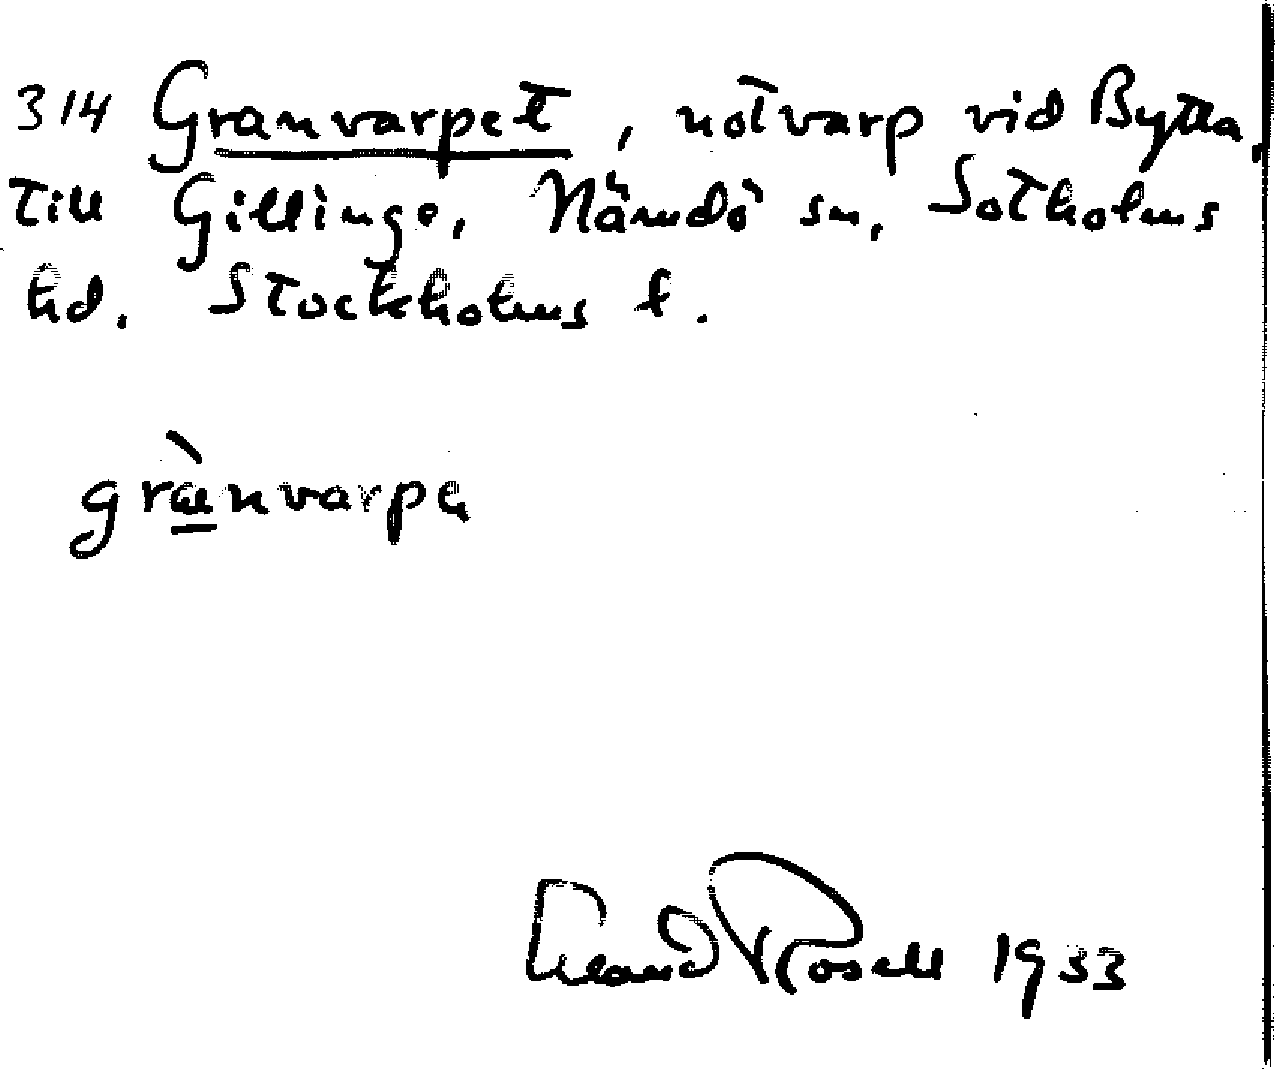 314 Granvarpet, notvarp vid Bytta,
till Gillinge, Nämdö sn, Sotholms
hd. Stockholms l.
grànvarpa
Rosell 1933